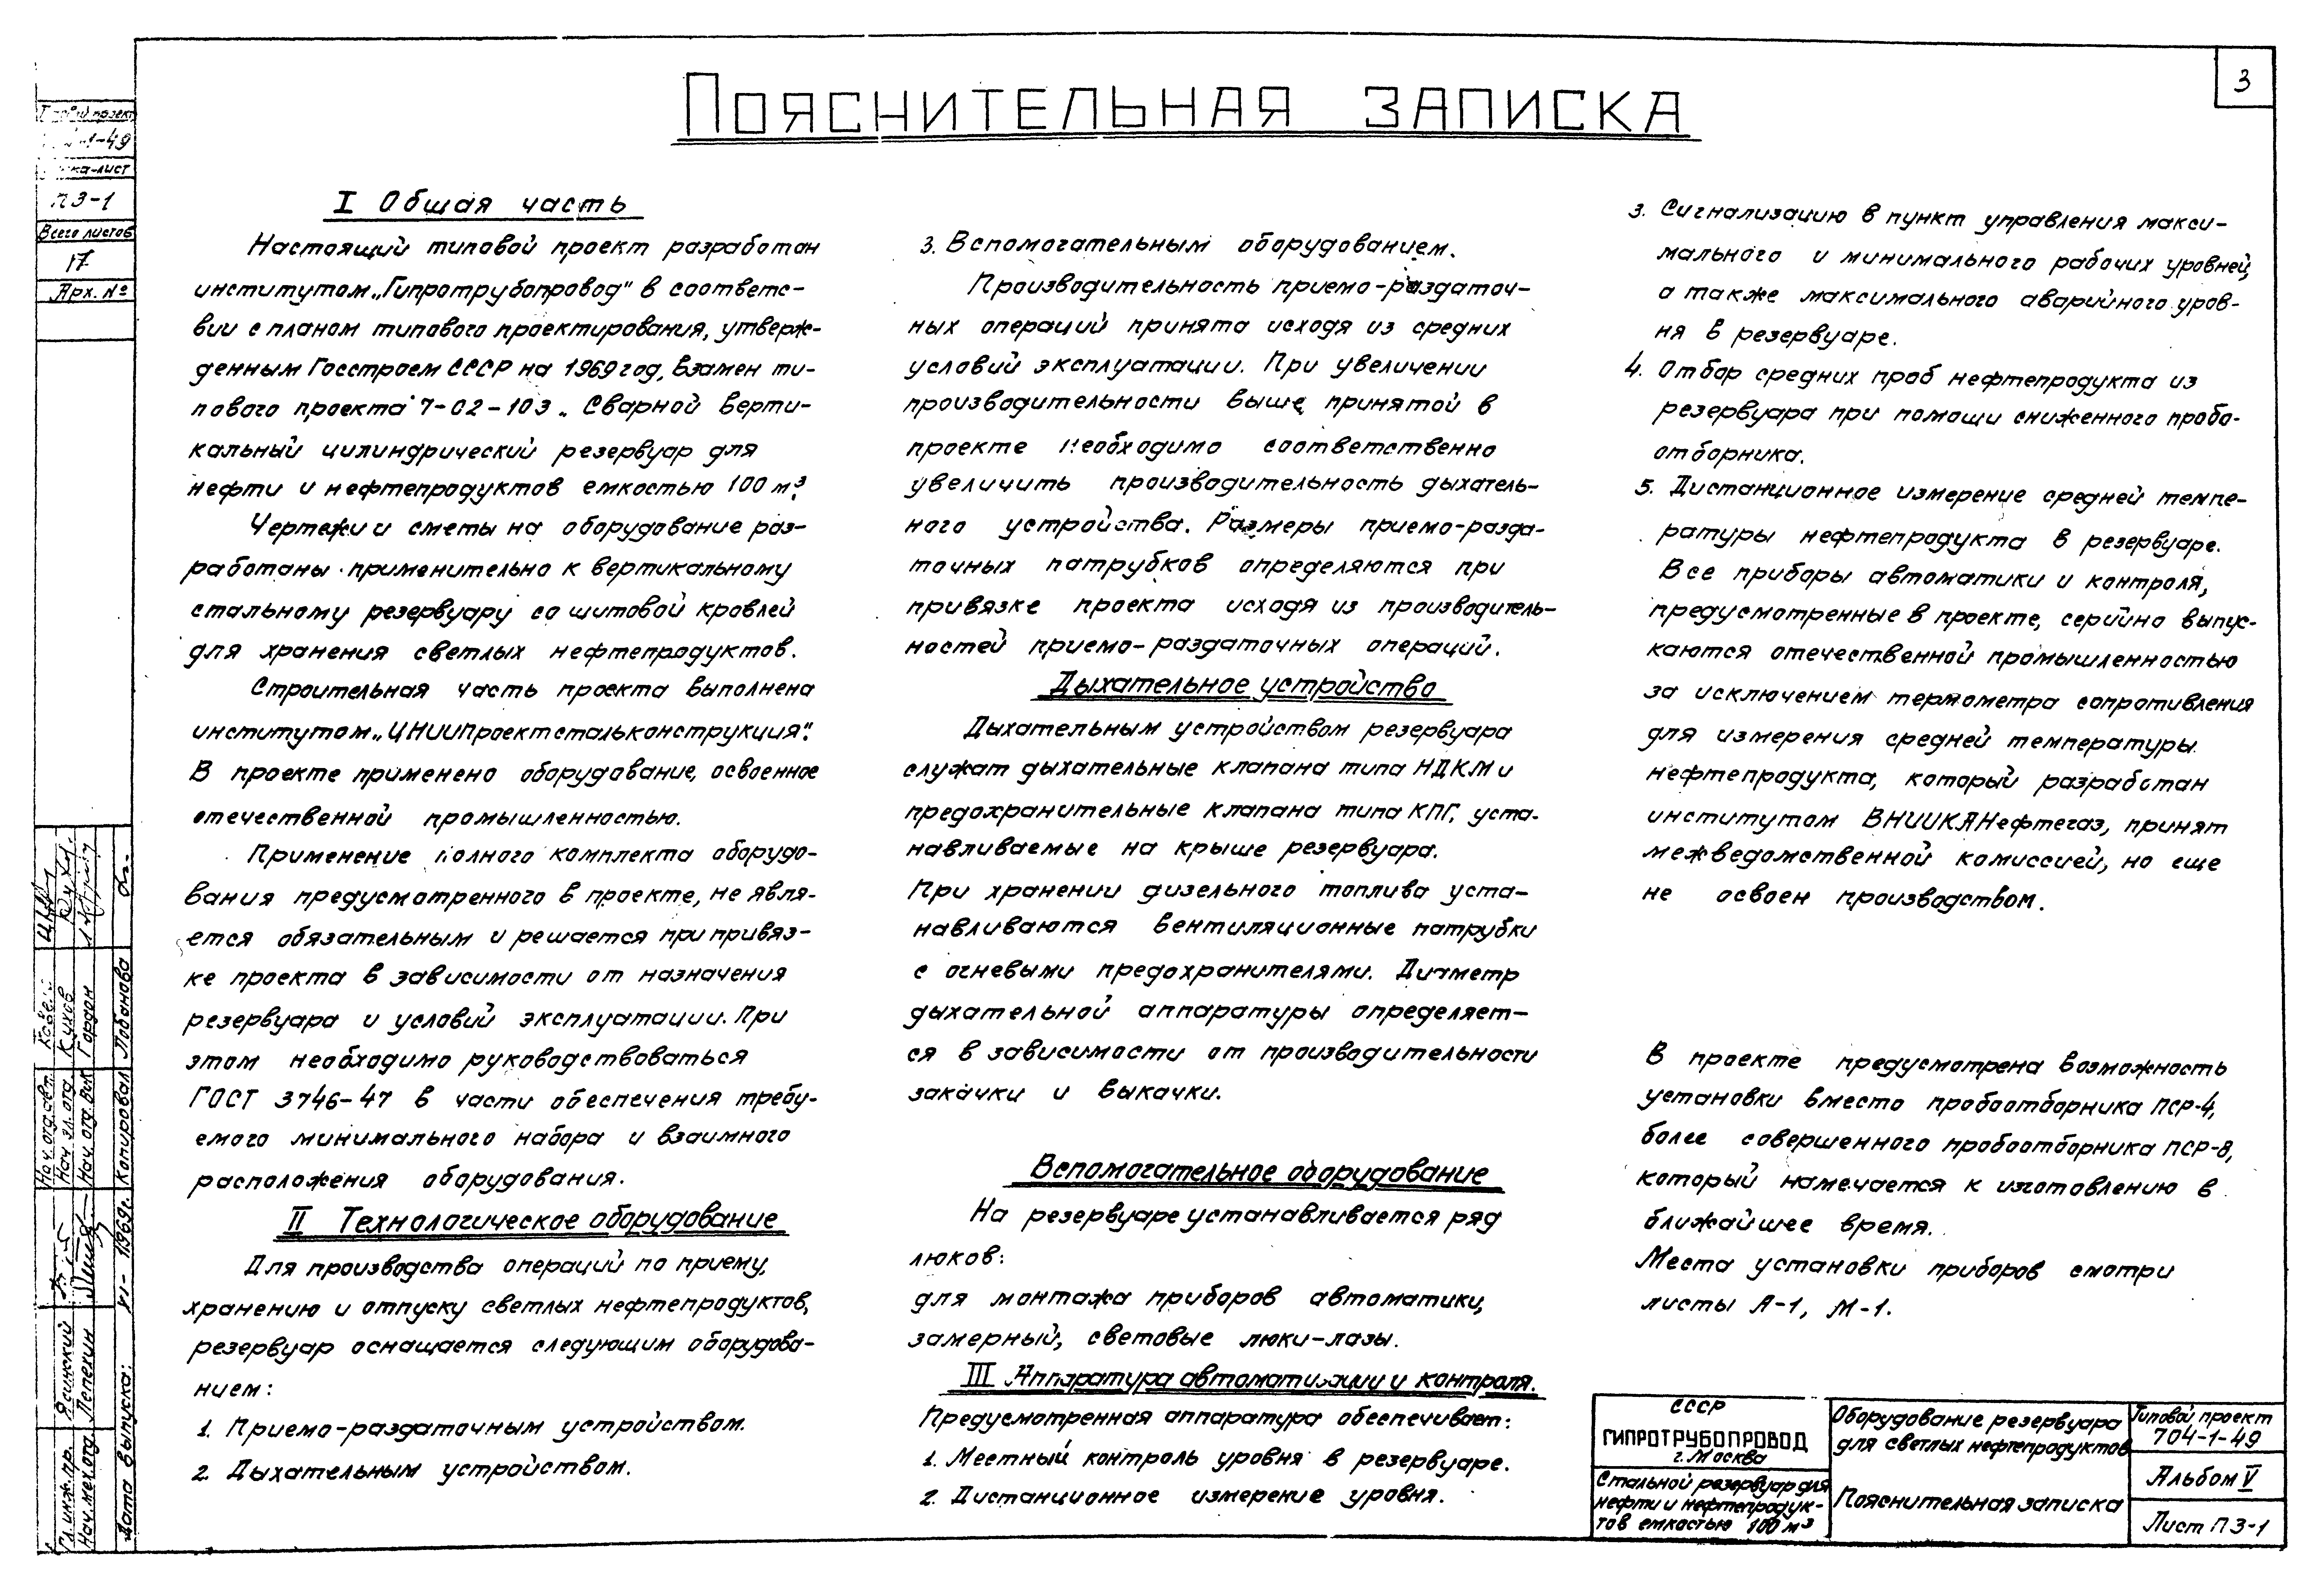 3
Пояснительная записка
I Общая часть
Настоящий типовой проект разработан
институтом „Гипротрубопровод" в соответс-
вии с планом типового проектирования, утверж-
денным Госстроем СССР на 1969 год, взамен ти-
пового проекта 7-02-103 „ Сварной верти-
кальный цилиндрический резервуар для
нефти и нефтепродуктов емкостью 100 м³.
Чертежи и сметы на оборудование раз-
работаны применительно к вертикальному
стальному резервуару со щитовой кровлей
для хранения светлых нефтепродуктов.
Строительная часть проекта выполнена
институтом „ЦНИИПроектстальконструкция".
В проекте применено оборудование, освоенное
отечественной промышленностью.
Применение полного комплекта оборудо-
вания предусмотренного в проекте, не явля-
ется обязательным и решается при привяз-
ке проекта в зависимости от назначения
резервуара и условий эксплуатации. При
этом необходимо руководствоваться
ГОСТ 3746-47 в части обеспечения требу-
емого минимального набора и взаимного
расположения оборудования.
II Технологическое оборудование
Для производства операций по приему,
хранению и отпуску светлых нефтепродуктов,
резервуар оснащается следующим оборудова-
нием:
1. Приемо-раздаточным устройством.
2. Дыхательным устройством.
3. Вспомогательным оборудованием.
Производительность приемо-раздаточ-
ных операций принята исходя из средних
условий эксплуатации. При увеличении
производительности выше принятой в
проекте необходимо соответственно
увеличить производительность дыхатель-
ного устройства. Размеры приемо-разда-
точных патрубков определяются при
привязке проекта исходя из производитель-
ностей приемо-раздаточных операций.
Дыхательное устройство
Дыхательным устройством резервуара
служат дыхательные клапана типа НДКМ и
предохранительные клапана типа КПГ, уста-
навливаемые на крыше резервуара.
При хранении дизельного топлива уста-
навливаются вентиляционные патрубки
с огневыми предохранителями. Диаметр
дыхательной аппаратуры определяет-
ся в зависимости от производительности
закачки и выкачки.
Вспомогательное оборудование
На резервуаре устанавливается ряд
люков:
для монтажа приборов автоматики,
замерный, световые люки-лазы.
III Аппаратура автоматизации и контроля.
Предусмотренная аппаратура обеспечивает:
1. Местный контроль уровня в резервуаре.
2. Дистанционное измерение уровня.
3. Сигнализацию в пункт управления макси-
мального и минимального рабочих уровней,
а также максимального аварийного уров-
ня в резервуаре.
4. Отбор средних проб нефтепродукта из
резервуара при помощи сниженного пробо-
отборника.
5. Дистанционное измерение средней темпе-
ратуры нефтепродукта в резервуаре.
Все приборы автоматики и контроля,
предусмотренные в проекте, серийно выпус-
каются отечественной промышленностью
за исключением термометра сопротивления
для измерения средней температуры
нефтепродукта, который разработан
институтом ВНИИКАНефтегаз, принят
межведомственной комиссией, но еще
не освоен производством.
В проекте предусмотрена возможность
установки вместо пробоотборника ПСР-4,
более совершенного пробоотборника ПСР-8,
который намечается к изготовлению в
ближайшее время.
Места установки приборов смотри
листы А-1, М-1.
СССР
ГИПРОТРУБОПРОВОД
г. Москва
Стальной резервуар для
нефти и нефтепродук-
тов емкостью 100 м³
Оборудование резервуара
для светлых нефтепродуктов
Пояснительная записка
Типовой проект
704-1-49
Альбом V
Лист ПЗ-1
проект
1-49
лист
ПЗ-1
Всего листов
17
Арх. №
Нач. отд. авт.
Нач. эл. отд. Кухов
Нач. отд. Гордон
Копировал Лобанова
Гл. инж. пр. Ясинский
Нач. мех. отд. Лепехин
Дата выпуска: VI-1969г.